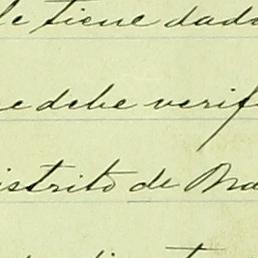 le tiene dad
e debe verif
istrito de Bra